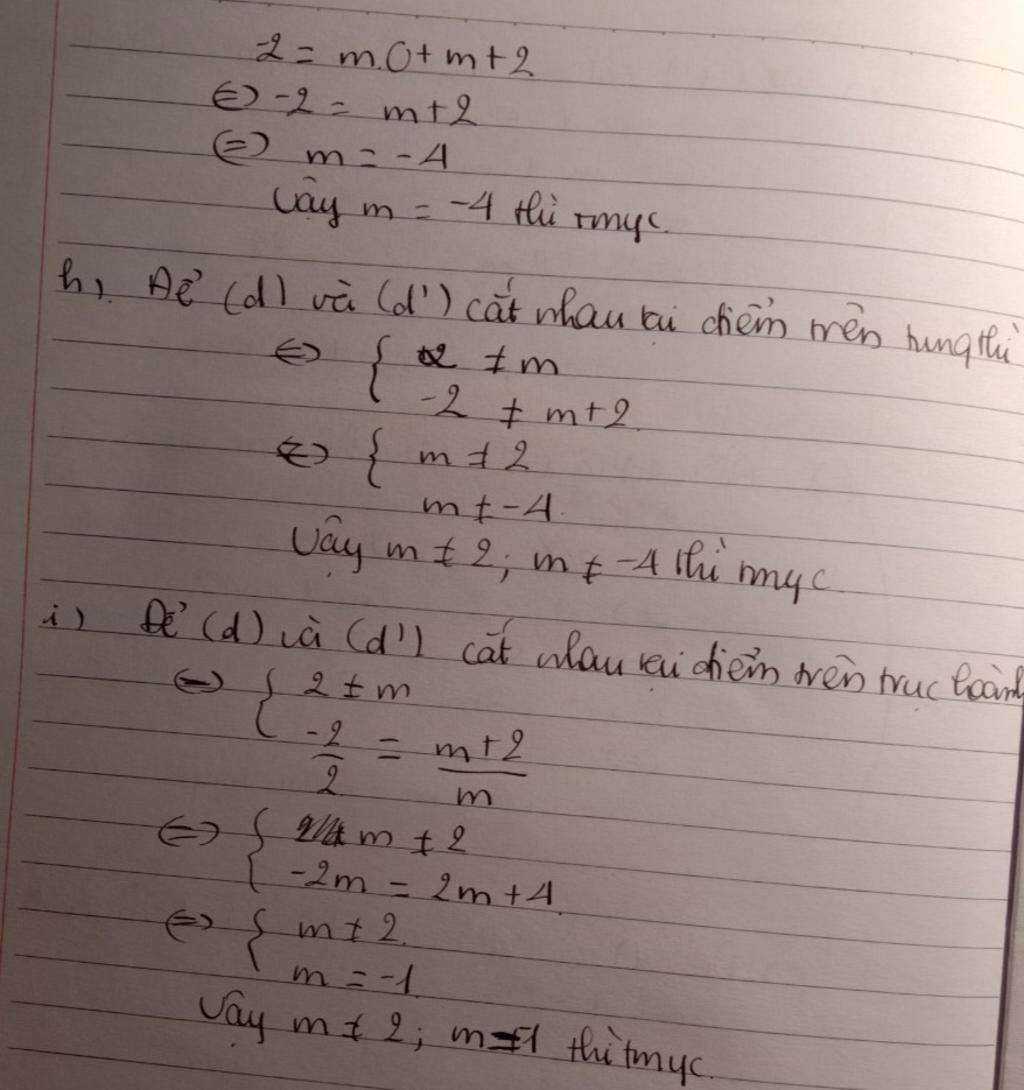 -2 = m.0 + m + 2
⇔ -2 = m + 2
⇔ m = -4
Vậy m = -4 thì tmyc.
h) Để (d) và (d') cắt nhau tại điểm trên tung thì
⇔ { 2 ≠ m
-2 ≠ m + 2.
⇔ { m ≠ 2
m ≠ -4.
Vậy m ≠ 2; m ≠ -4 thì tmyc
i) Để (d) và (d') cắt nhau tại điểm trên trục hoành
⇔ { 2 ≠ m
-2/2 = (m+2)/m
⇔ { m ≠ 2
-2m = 2m + 4.
⇔ { m ≠ 2.
m = -1.
Vậy m ≠ 2; m = -1 thì tmyc.